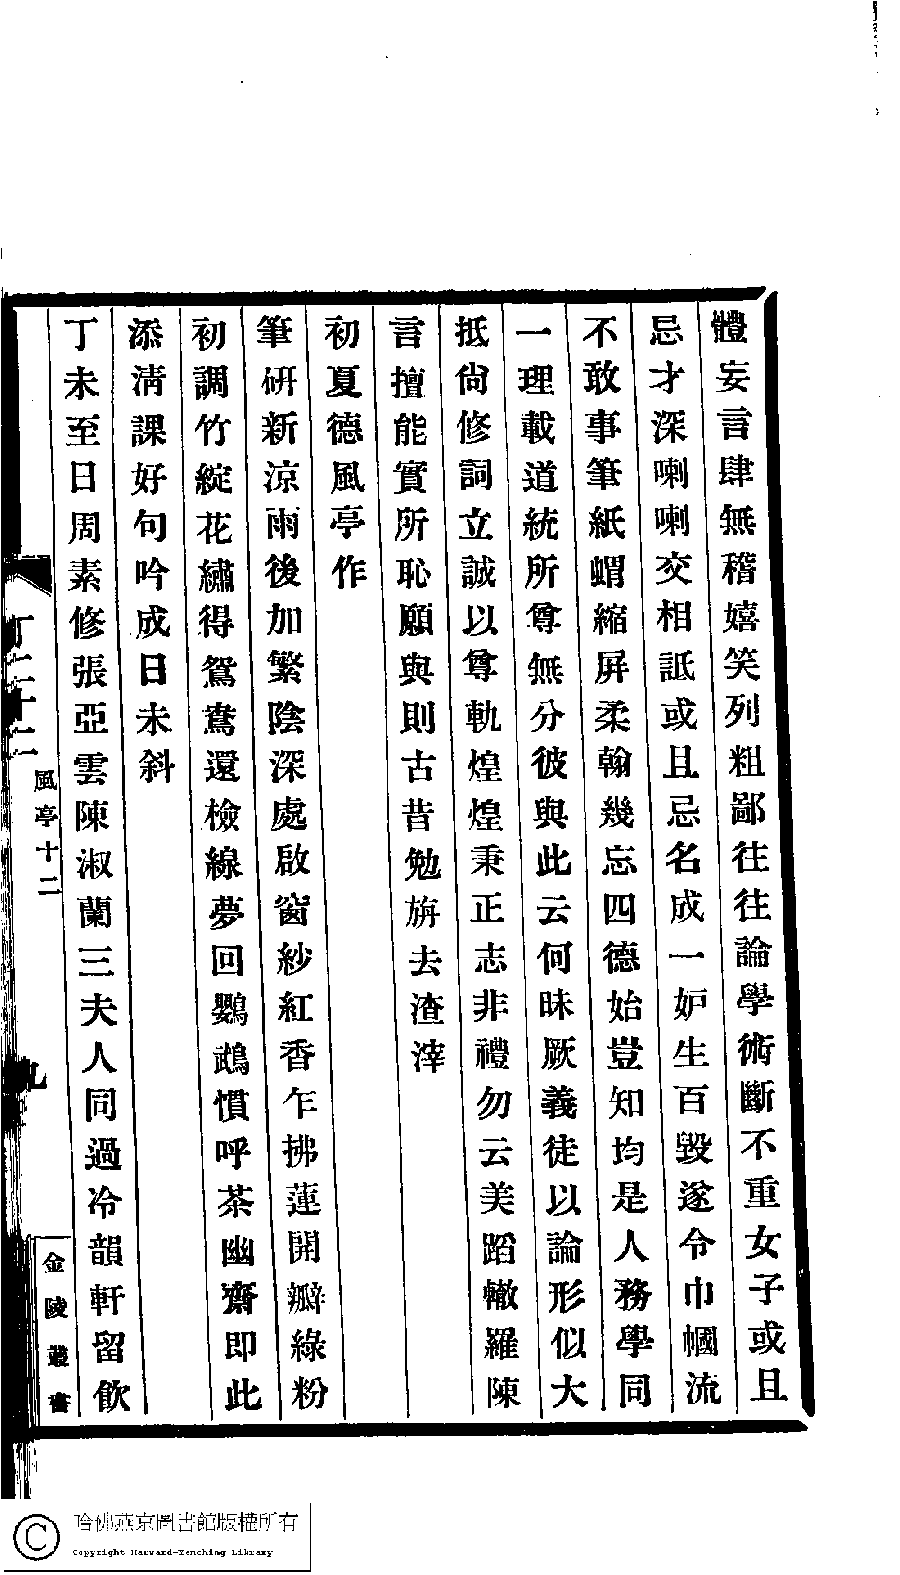 體妄言肆無稽嬉笑列粗鄙往往論學術斷不重女子或且
忌才深喇喇交相詆或且忌名成一妒生百毀遂令巾幗流
不敢事筆紙蝟縮屏柔翰幾忘四德始豈知均是人務學同
一理載道統所尊無分彼與此云何昧厥義徒以論形似大
抵尙修詞立誠以尊軌煌煌秉正志非禮勿云美蹈轍羅陳
言擅能實所恥願與則古昔勉旃去渣滓
初夏德風亭作
筆研新涼雨後加繁陰深處啟窗紗紅香乍拂蓮開瓣綠粉
初調竹綻花繡得鴛鴦還檢線夢回鸚鵡慣呼茶幽齋即此
添淸課好句吟成日未斜
丁未至日周素修張亞雲陳淑蘭三夫人同過冷韻軒留飮
風亭十二
九
金陵叢書
哈佛燕京圖書館版權所有
Copyright Harvard-Yenching Library